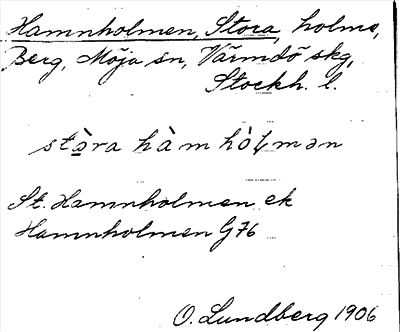 Hamnholmen, Stora, holme,
Berg, Möja sn, Värmdö skg,
Stockh. l.
stə̀ra hàmhòɫmən
St. Hamnholmen ek
Hamnholmen G76
O. Lundberg 1906